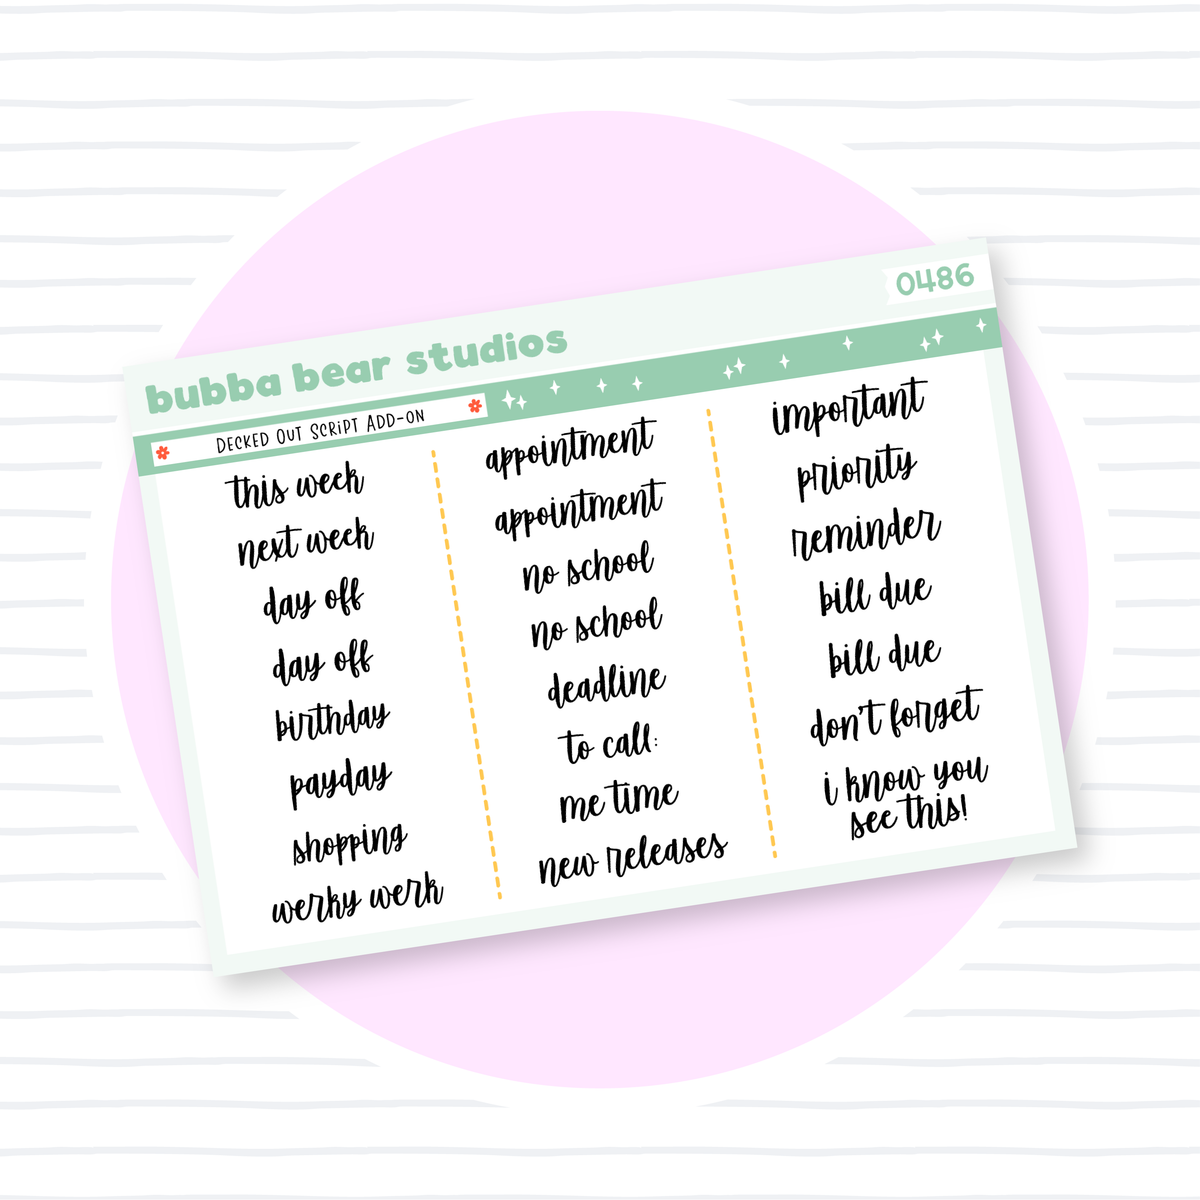 bubba bear studios
0486
DECKED OUT SCRIPT ADD-ON
this week
next week
day off
day off
birthday
payday
shopping
werky werk
appointment
appointment
no school
no school
deadline
to call:
me time
new releases
important
priority
reminder
bill due
bill due
don't forget
i know you
see this!